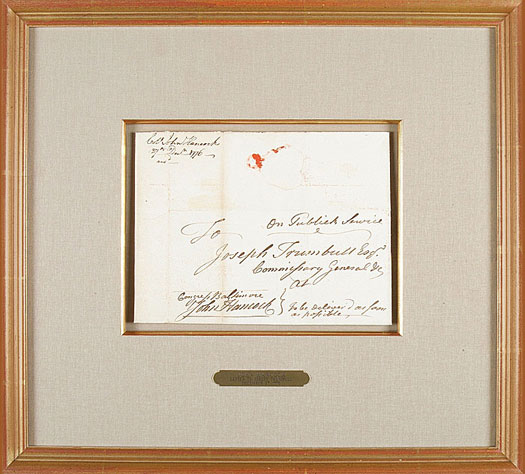 Colo. John Hancock
27th Decr. 1776
On Publick Service
To
Joseph Trumbull Esqr.
Commissary General &c
at
Congress Baltimore
John Hancock
To be deliver'd as soon
as possible